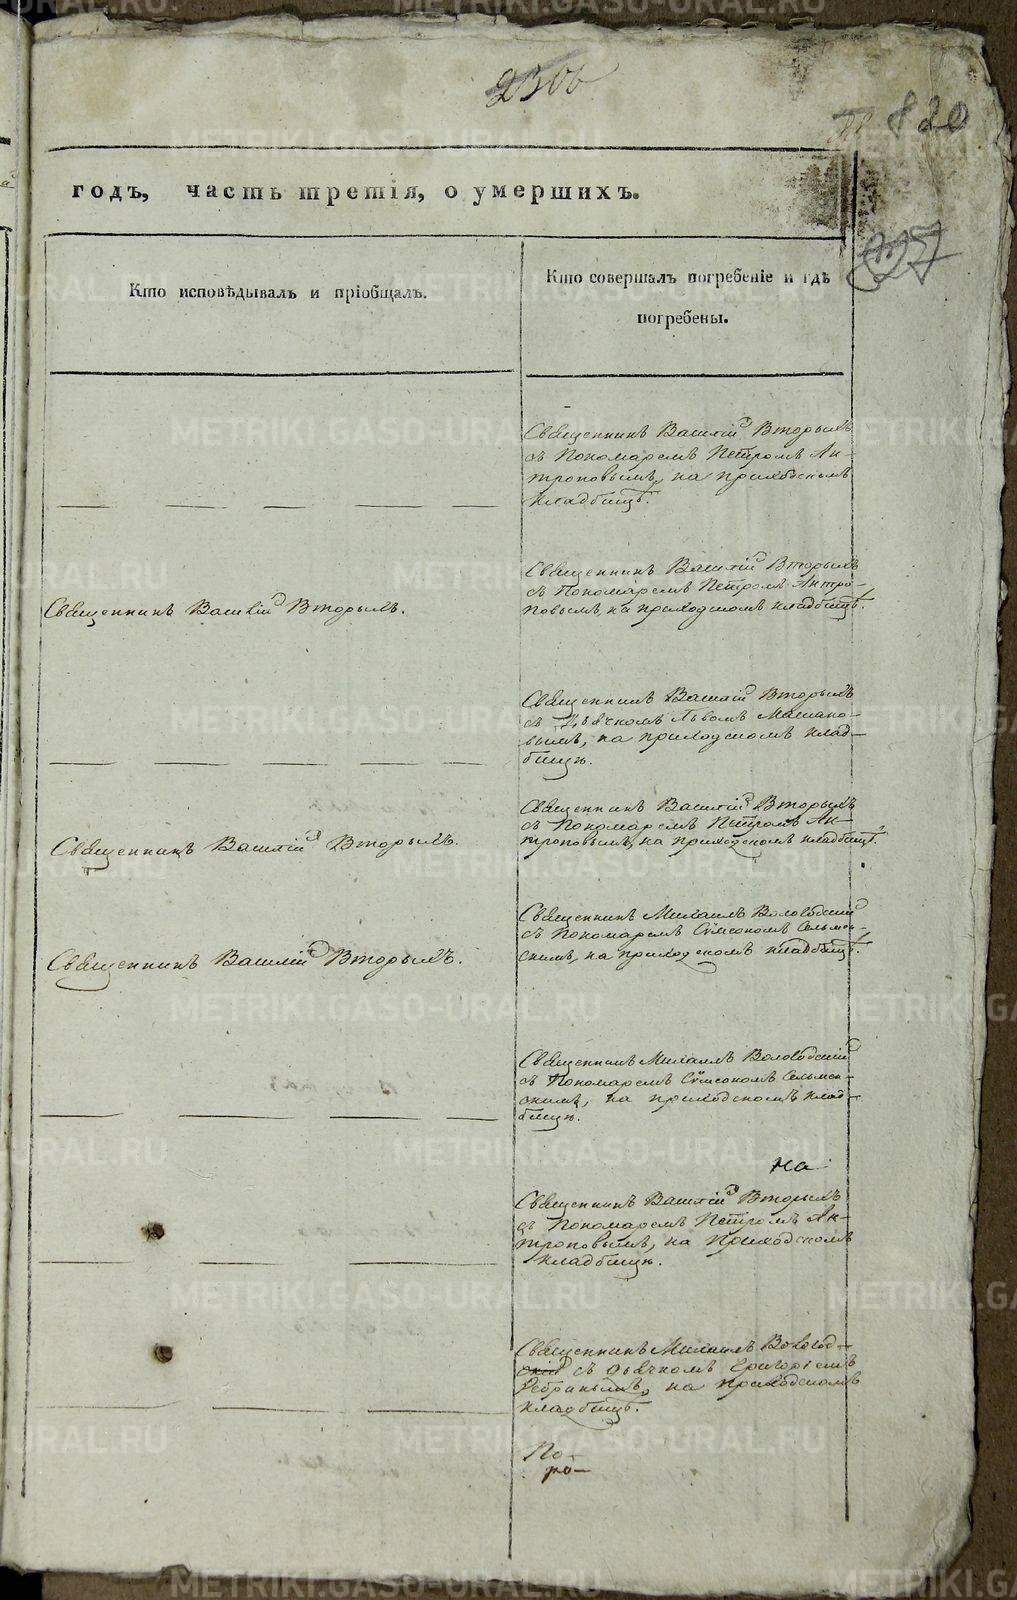 820
годъ, часть третія, о умершихъ.
Кто исповѣдывалъ и пріобщалъ.
Кто совершалъ погребеніе и гдѣ
погребены.
Священникъ Василій Вторыхъ
съ Пономаремъ Петромъ Ан-
троповымъ, на приходскомъ
кладбищѣ.
Священникъ Василій Вторыхъ.
Священникъ Василій Вторыхъ
съ Пономаремъ Петромъ Антро-
повымъ, на приходскомъ кладбищѣ.
Священникъ Василій Вторыхъ
съ Дьячкомъ Львомъ
на приходскомъ клад-
бищѣ.
Священникъ Василій Вторыхъ.
Священникъ Василій Вторыхъ
съ Пономаремъ Петромъ Ан-
троповымъ, на приходскомъ кладбищѣ.
Священникъ Василій Вторыхъ.
Священникъ Михаилъ Вологодскій
съ Пономаремъ Сѵмеономъ Сельмен-
скимъ, на приходскомъ кладбищѣ.
Священникъ Михаилъ Вологодскій
съ Пономаремъ Сѵмеономъ Сельмен-
скимъ, на приходскомъ клад-
бищѣ.
на
Священникъ Василій Вторыхъ
съ Пономаремъ Петромъ Ан-
троповымъ, на Приходскомъ
кладбищѣ.
Священникъ Михаилъ Вологод-
скій съ дьячкомъ Григоріемъ
на Приходскомъ
кладбищѣ.
По-
ро-
METRIKI.GASO-URAL.RU